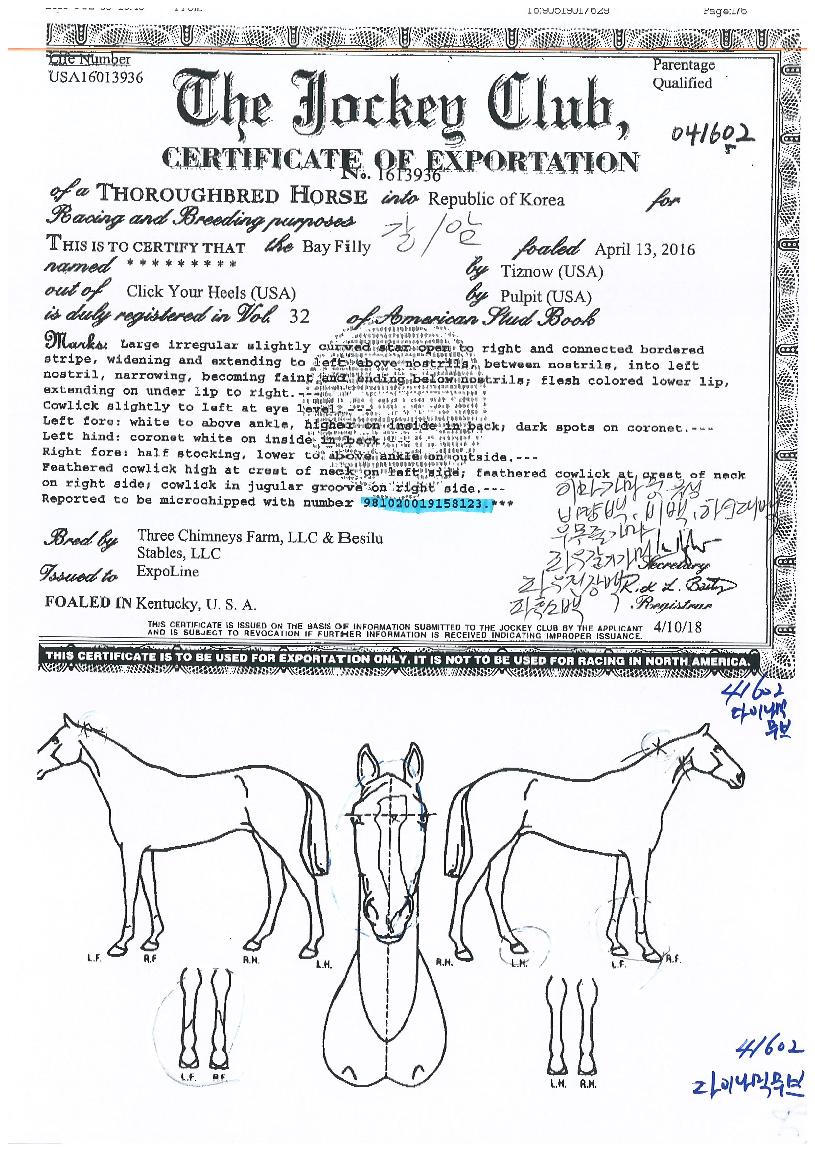 16:90519017629 Page:1/6
Life Number
USA16013936
Parentage
Qualified
The Jockey Club,
041602
CERTIFICATE OF EXPORTATION
No. 1613936
of a THOROUGHBRED HORSE into Republic of Korea for
Racing and Breeding purposes
갈/암
THIS IS TO CERTIFY THAT the Bay Filly foaled April 13, 2016
named * * * * * * * * * by Tiznow (USA)
out of Click Your Heels (USA) by Pulpit (USA)
is duly registered in Vol. 32 of American Stud Book
Marks: Large irregular slightly curved star open to right and connected bordered
stripe, widening and extending to left above nostrils, between nostrils, into left
nostril, narrowing, becoming faint and ending below nostrils; flesh colored lower lip,
extending on under lip to right.---
Cowlick slightly to left at eye level.---
Left fore: white to above ankle, higher on inside in back; dark spots on coronet.---
Left hind: coronet white on inside in back.---
Right fore: half stocking, lower to above ankle on outside.---
Feathered cowlick high at crest of neck on left side; feathered cowlick at crest of neck
on right side; cowlick in jugular groove on right side.---
Reported to be microchipped with number 981020019158123.***
Bred by Three Chimneys Farm, LLC & Besilu
Stables, LLC
Secretary
Issued to ExpoLine
Registrar
FOALED IN Kentucky, U. S. A.
THIS CERTIFICATE IS ISSUED ON THE BASIS OF INFORMATION SUBMITTED TO THE JOCKEY CLUB BY THE APPLICANT
AND IS SUBJECT TO REVOCATION IF FURTHER INFORMATION IS RECEIVED INDICATING IMPROPER ISSUANCE.
4/10/18
THIS CERTIFICATE IS TO BE USED FOR EXPORTATION ONLY. IT IS NOT TO BE USED FOR RACING IN NORTH AMERICA.
41602
다이내믹
무브
L.F. R.F. R.H. L.H. R.H. L.H. L.F. R.F.
L.F. R.F. L.H. R.H.
41602
다이내믹무브